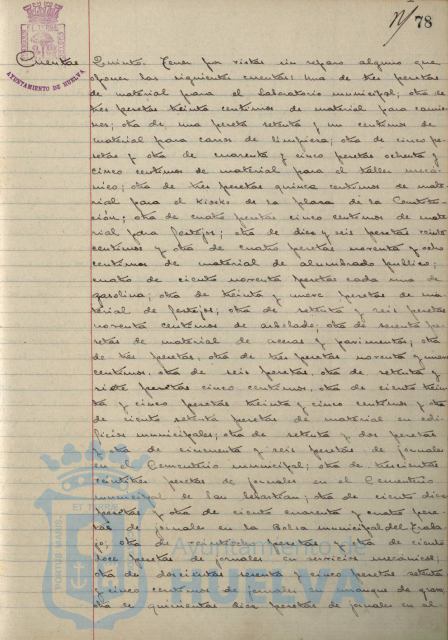 Nº/ 78
AYUNTAMIENTO DE HUELVA
Cuentas Quinto. Tener por vistas sin reparo alguno que
oponer las siguientes cuentas: Una de tres pesetas
de material para el laboratorio municipal; otra de
tres pesetas treinta centimos de material para camio
nes; otra de una peseta setenta y un centimos de
material para carros de limpieza; otra de cinco pe-
setas y otra de cuarenta y cinco pesetas ochenta y
cinco centimos de material para el taller mecá-
nico; otra de tres pesetas quince centimos de mate
rial para el Kiosko de la plaza de la Constitu-
ción; otra de cuatro pesetas cinco centimos de mate
rial para festejos; otra de diez y seis pesetas veinte
centimos y otra de cuatro pesetas noventa y ocho
centimos de material de alumbrado publico;
cuatro de ciento noventa pesetas cada una de
gasolina; otra de treinta y nueve pesetas de ma
terial de festejos; otra de setenta y seis pesetas
noventa centimos de arbolado; otra de sesenta pe
setas de material de aceras y pavimentos; otra
de tres pesetas, otra de tres pesetas noventa y nueve
centimos, otra de seis pesetas, otra de setenta y
siete pesetas cinco centimos, otra de ciento trein
ta y cinco pesetas treinta y cinco centimos y otra
de ciento setenta pesetas de material en edi-
ficios municipales; otra de setenta y dos pesetas
y otra de cincuenta y seis pesetas de jornales
en el Cementerio municipal; otra de trescientas
pesetas de jornales en el Cementerio
municipal de San Sebastian; otra de ciento diez
pesetas y otra de ciento cuarenta y cuatro pese-
tas de jornales en la Bolsa municipal del Traba
jo; otra de veintiocho pesetas y otra de ciento
doce pesetas de jornales en servicios mecánicos;
otra de doscientas sesenta y cinco pesetas setenta
y cinco centimos de jornales en
otra de quinientas diez pesetas de jornales en el
PORTUS MARIS ET TERRE CUSTODIA
Ayuntamiento de
HUELVA